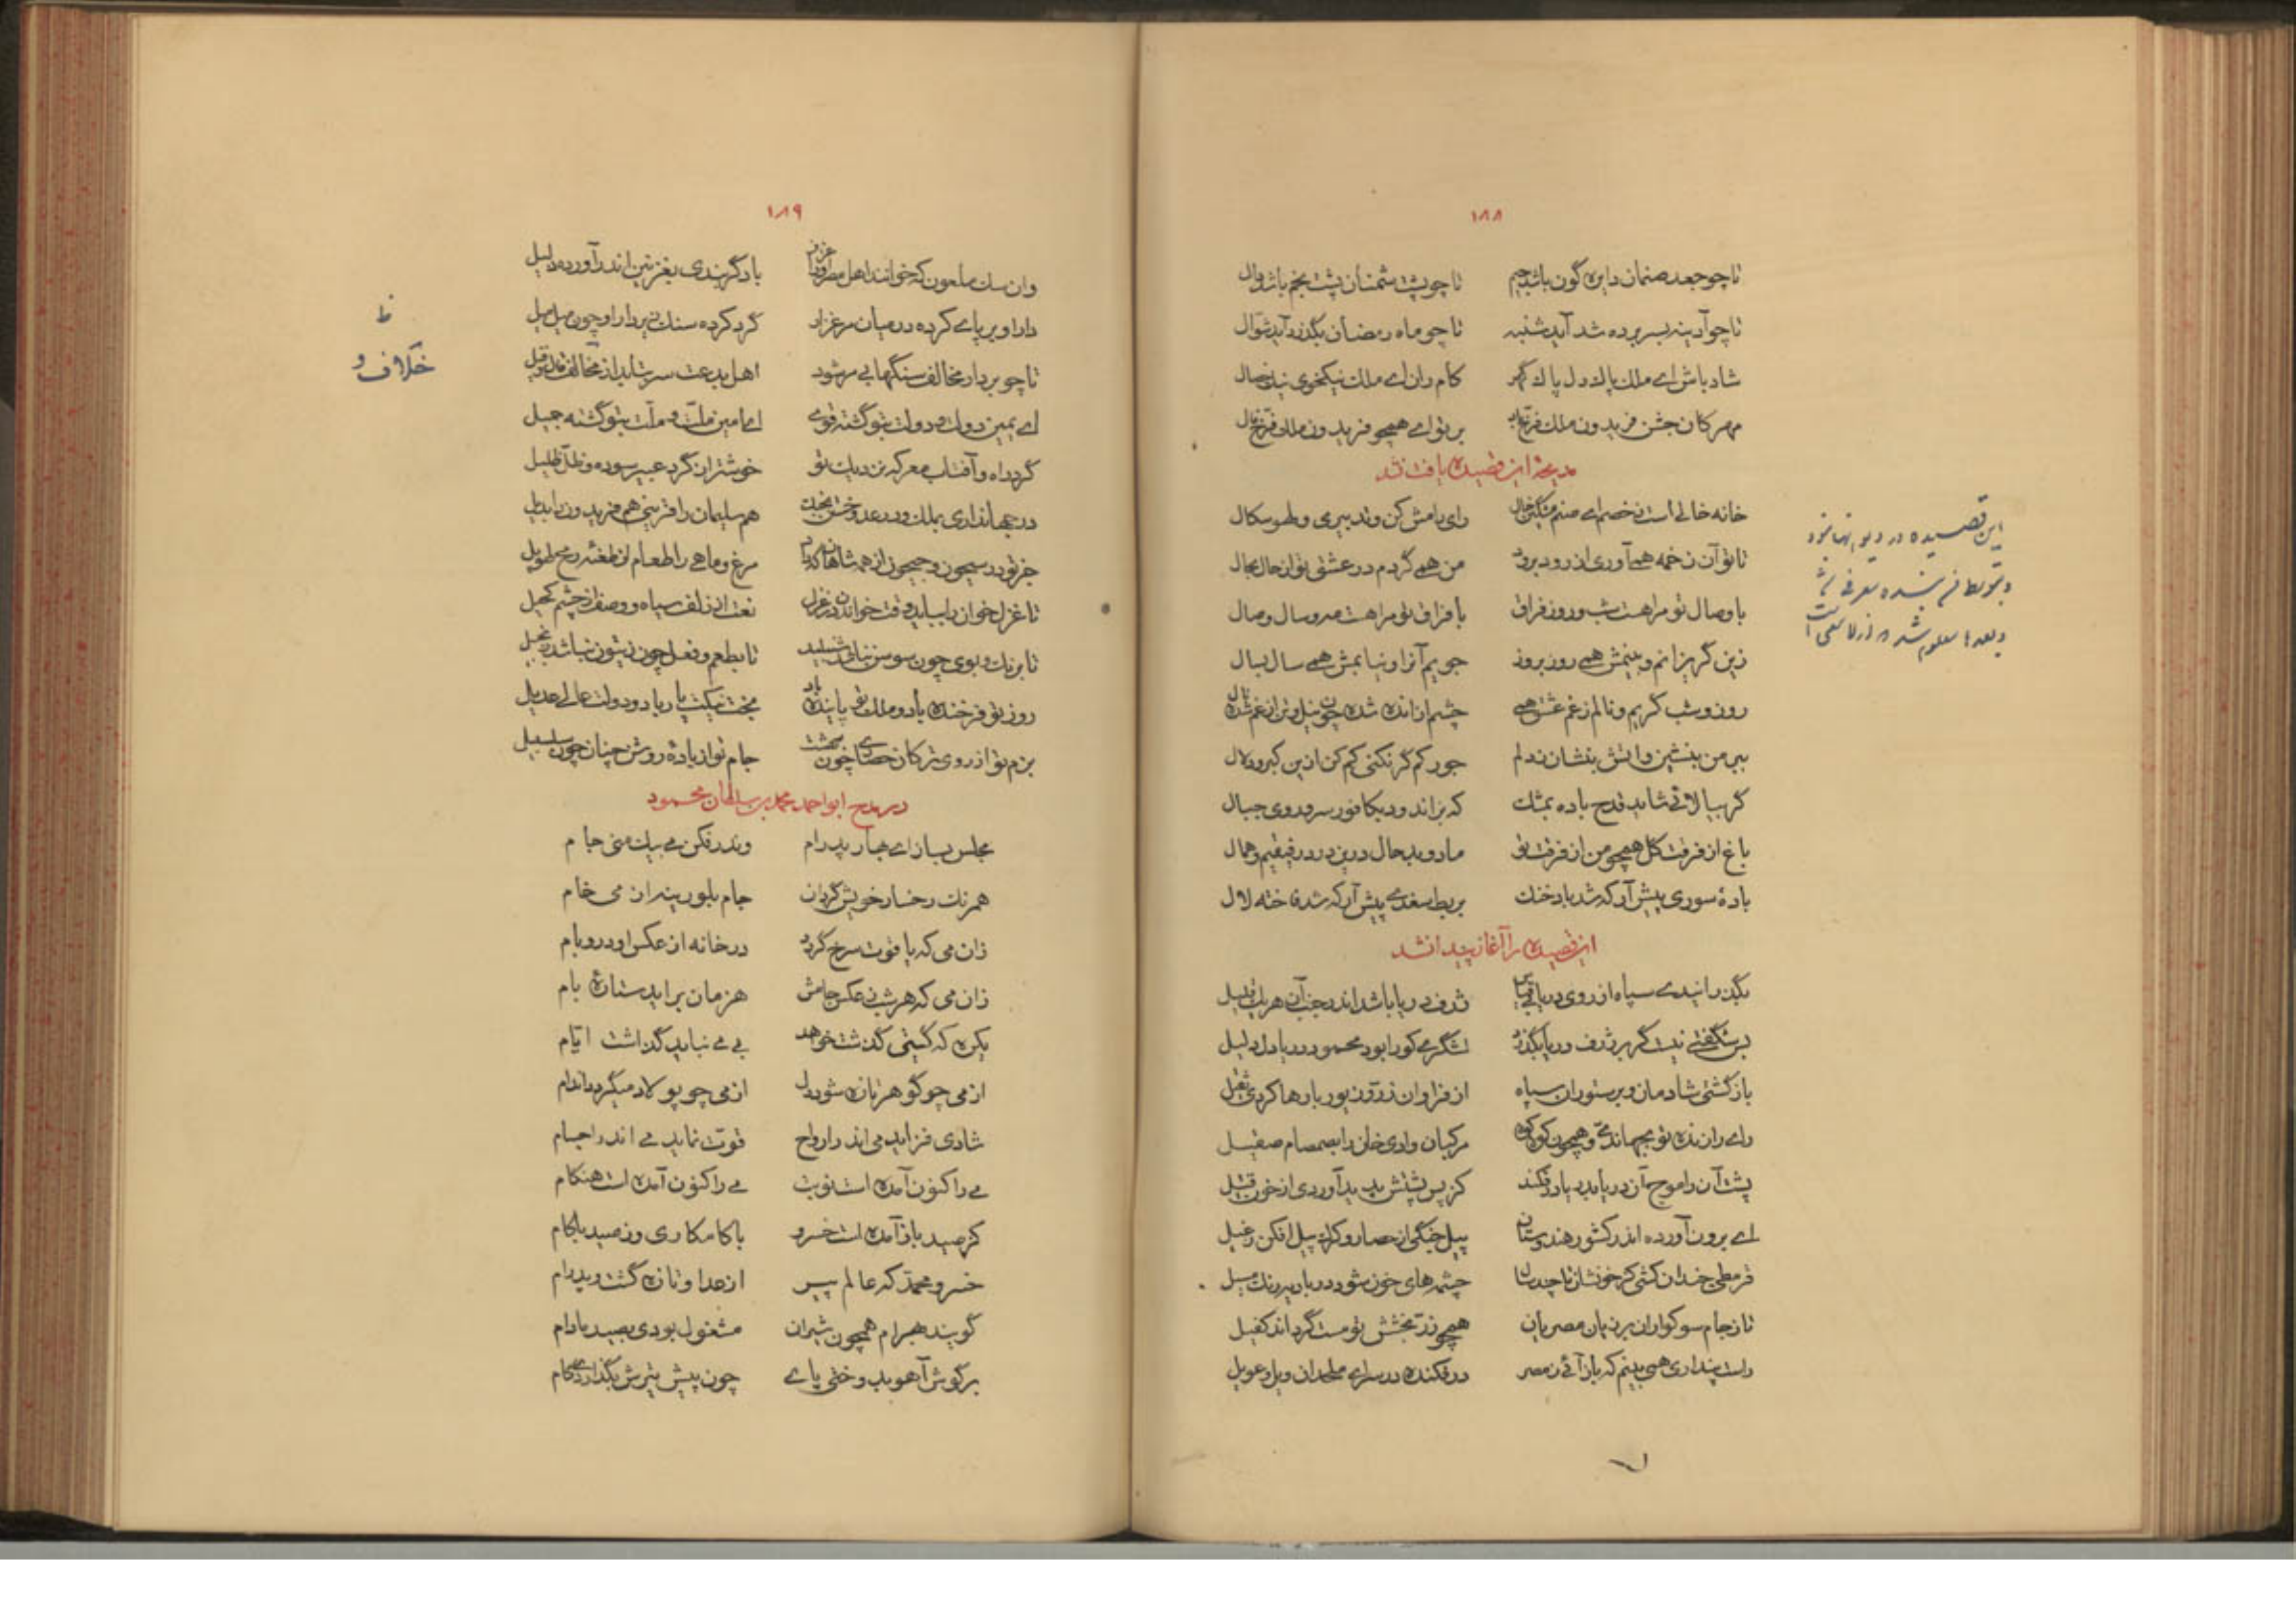 ۱۸۸
تا چو جعد صنمان دایره گون باشد جیم تا چو پشت شمنان پشت بخم باشد دال
تا چو آدینه بسر برده شد آید شنبه تا چو ماه رمضان بگذرد آید شوال
شاد باش ای ملک پاک دل پاک گهر کام ران ای ملک نیکخوی نیک خصال
مهرکان جشن فریدون ملک فرخ باد بر تو ای همچو فریدون ملک فرخ فال
مدیحهٔ این قصیده یافت نشد
خانه خالی است ز خصم ای صنم مشکین خال رای رامش کن و تدبیری و
تا تو آن زخمه همآوری از رود برود من همی گردم در عشق تو از حال بحال
با وصال تو مرا هست شب و روز فراق با فراق تو مرا هست مه و سال وصال
زین گریزانم و بینمش همی روز بروز جویم آنرا و نیابمش همی سال بسال
روز و شب گریم و نالم ز غم عشق همی چشم از انده شده چون نیل و تن از غم شده نال
ببر من بنشین و آتش بنشان ز دلم جور کم گر نکنی کم کن ازین کبر و دلال
گر ببالائی شاید قدح باده بمشک که بر اندود بکافور سر و روی جبال
باغ از فرقت گل همچو من از فرقت تو ما دو بد حال درین درد رفیقیم و همال
بادهٔ سوری پیش آر که شد باد خنک بربط سغدی پیش آر که شد فاخته لال
این قصیده را آغاز پیدا نشد
بگذرانیدی سپاه از روی دریائی قیاس ژرف دریا باشد اندر جنب آن هر یک قلیل
بس شگفتی نیست گر بر ژرف دریا بگذرد لشگری کو را بود محمود دریا دل دلیل
باز گشتی شادمان و بر ستوران سپاه از فراوان زر و زیور بارها کردی ثقیل
رای رانده تو
پشت آن را موج آن دریا بدریا در فکند کز پس پشتش پدید آوردی از خون
ای برون آورده اندر کشور هندوستان پیل جنگی از حصار و کرک پیل افکن ز غیل
قرمطی چندان کشی کز خونشان تا چند سال چشمه های خون شود در بادیه ریک مسیل
تا ز جام سوکواران بر زبان مصریان همچو زر بخشش تو مست گرداند کفیل
راست پنداری همی بینم که باز آئی ز مصر در فکنده در سرای ملحدان ویل و عویل
این قصیده در
۱۸۹
وان سگ ملعون که خوانند اهل مصر او را عزیز باد گر بندی بغزنین اندر آورده ذلیل
دار او بر پای کرده در میان مرغزار گرد کرده سنگ زیر دار او چون میل میل
تا چو بر دار مخالف سنگها بی مر شود اهل بدعت سر بتابد از مخالف قال و قیل
ای یمین دولت و دولت بتو گشته قوی ای امین ملت و ملت بتو گشته جمیل
گرد راه و آفتاب معرکه نزدیک تو خوشتر از گرد عبیر سوده و ظل ظلیل
در جهانداری بملک و در عدو جستن ببخت هم سلیمان را قرینی هم فریدون را بدیل
جز تو در سیحون و جیحون از همه شاهان که داد مرغ و ماهی را طعام از طعنهٔ رمح طویل
تا غزل خوان را بباید وقت خواندن در غزل نعت از زلف سیاه و وصف از چشم کحیل
تا برنگ و بوی چون سوسن نباشد شنبلید تا بطعم و فعل چون زیتون نباشد زنجبیل
روز تو فرخنده باد و ملک تو پاینده باد بخت نیکت یار باد و دولت عالی عدیل
بزم تو از روی ترکان حصاری چون بهشت جام تو از بادهٔ روشن چنان چون سلسبیل
در مدح ابو احمد محمد بن سلطان محمود
مجلس بساز ای بهار پدرام وندر فکن می بیک منی جام
همرنگ رخسار خویش گردان جام بلورینه از می خام
زان می که یاقوت سرخ گردد در خانه از عکس او در و بام
زان می که هر شب ز عکس جامش هر زمان بر آید ستاره بام
یکره که گیتی گذشت خواهد بی می نباید گذاشت ایام
از می چو گوهر تازه شود دل از می چو پولاد میگردد اندام
شادی فزاید می اندر ارواح قوت نماید می اندر اجسام
می را کنون آمده است نوبت می را کنون آمده است هنگام
کز صید باز آمده است خسرو با کامکاری وز صید با کام
خسرو محمد که عالم پیر از عدل او تازه گشت و پدرام
گویند بهرام همچون شیران مشغول بودی بصید مادام
بر گوش آهو بدوختی پای چون پیش تیرش بگذاردی گام
ظ
خلاف و